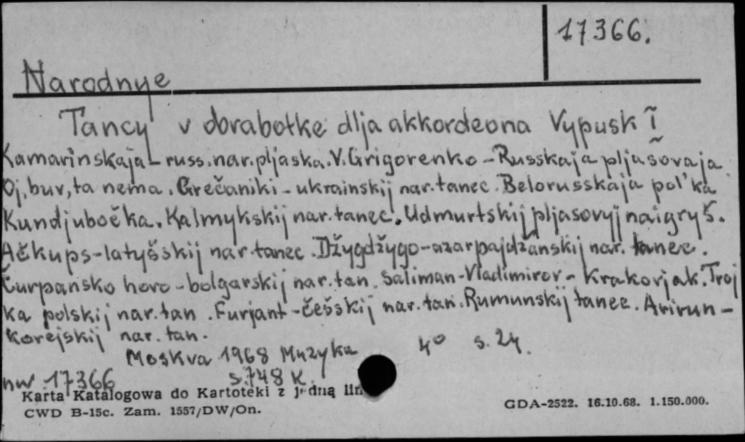 17366.
Narodnye
Tancy v obrabotke dlja akkordeona Vypusk I
Kamarinskaja - russ. nar. pljaska. V. Grigorenko - Russkaja pljasovaja
Oj, bur, ta nema. Grečaniki - ukrainskij nar. tanec. Belorusskaja pol'ka
Kundjubočka. Kalmykskij nar. tanec. Udmurtskij pljasovyj naigryš.
Ačkups - latyšskij nar. tanec. Džygdžygo - azarpajdžanskij nar. tanec.
Čurpańsko horo - bolgarskij nar. tan. Saliman - Vladimirov - Krakovjak. Troj
ka polskij nar. tan. Furjant - češskij nar. tan. Rumunskij tanec. Arirun -
Korejskij nar. tan.
Moskva 1968 Muzyka 4° s. 24.
nw. 17366 s. 748 K
Karta Katalogowa do Kartoteki z jedną lin
CWD B-15c. Zam. 1557/DW/On. GDA-2522. 16.10.68. 1.150.000.